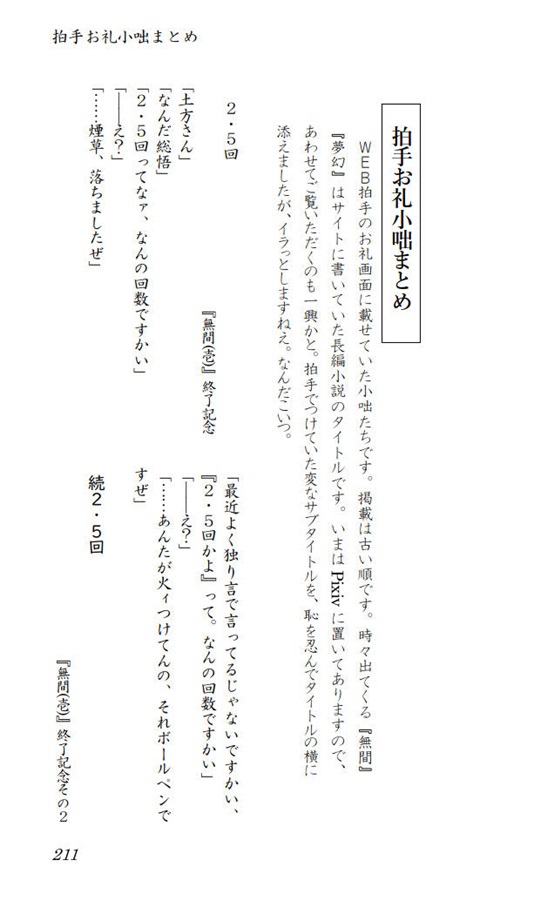 拍手お礼小咄まとめ
拍手お礼小咄まとめ
WEB拍手のお礼画面に載せていた小咄たちです。掲載は古い順です。時々出てくる『無間』
『夢幻』はサイトに書いていた長編小説のタイトルです。いまはPixivに置いてありますので、
あわせてご覧いただくのも一興かと。拍手でつけていた変なサブタイトルを、恥を忍んでタイトルの横に
添えましたが、イラっとしますねえ。なんだこいつ。
2・5回
『無間(壱)』終了記念
「土方さん」
「なんだ総悟」
「2・5回ってなァ、なんの回数ですかい」
「――え？」
「……煙草、落ちましたぜ」
「最近よく独り言で言ってるじゃないですかい、
『2・5回かよ』って。なんの回数ですかい」
「――え？」
「……あんたが火ィつけてんの、それボールペンで
すぜ」
続2・5回
『無間(壱)』終了記念その2
211